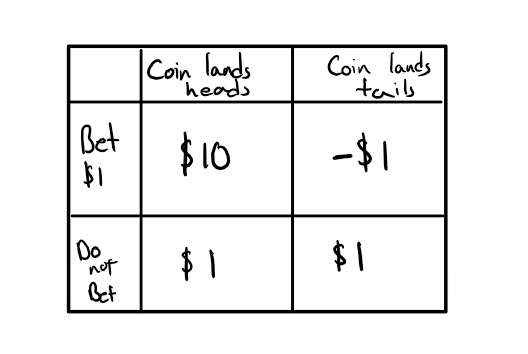 Coin lands
heads
Coin lands
tails
Bet
$1
$10
-$1
Do
not
Bet
$1
$1